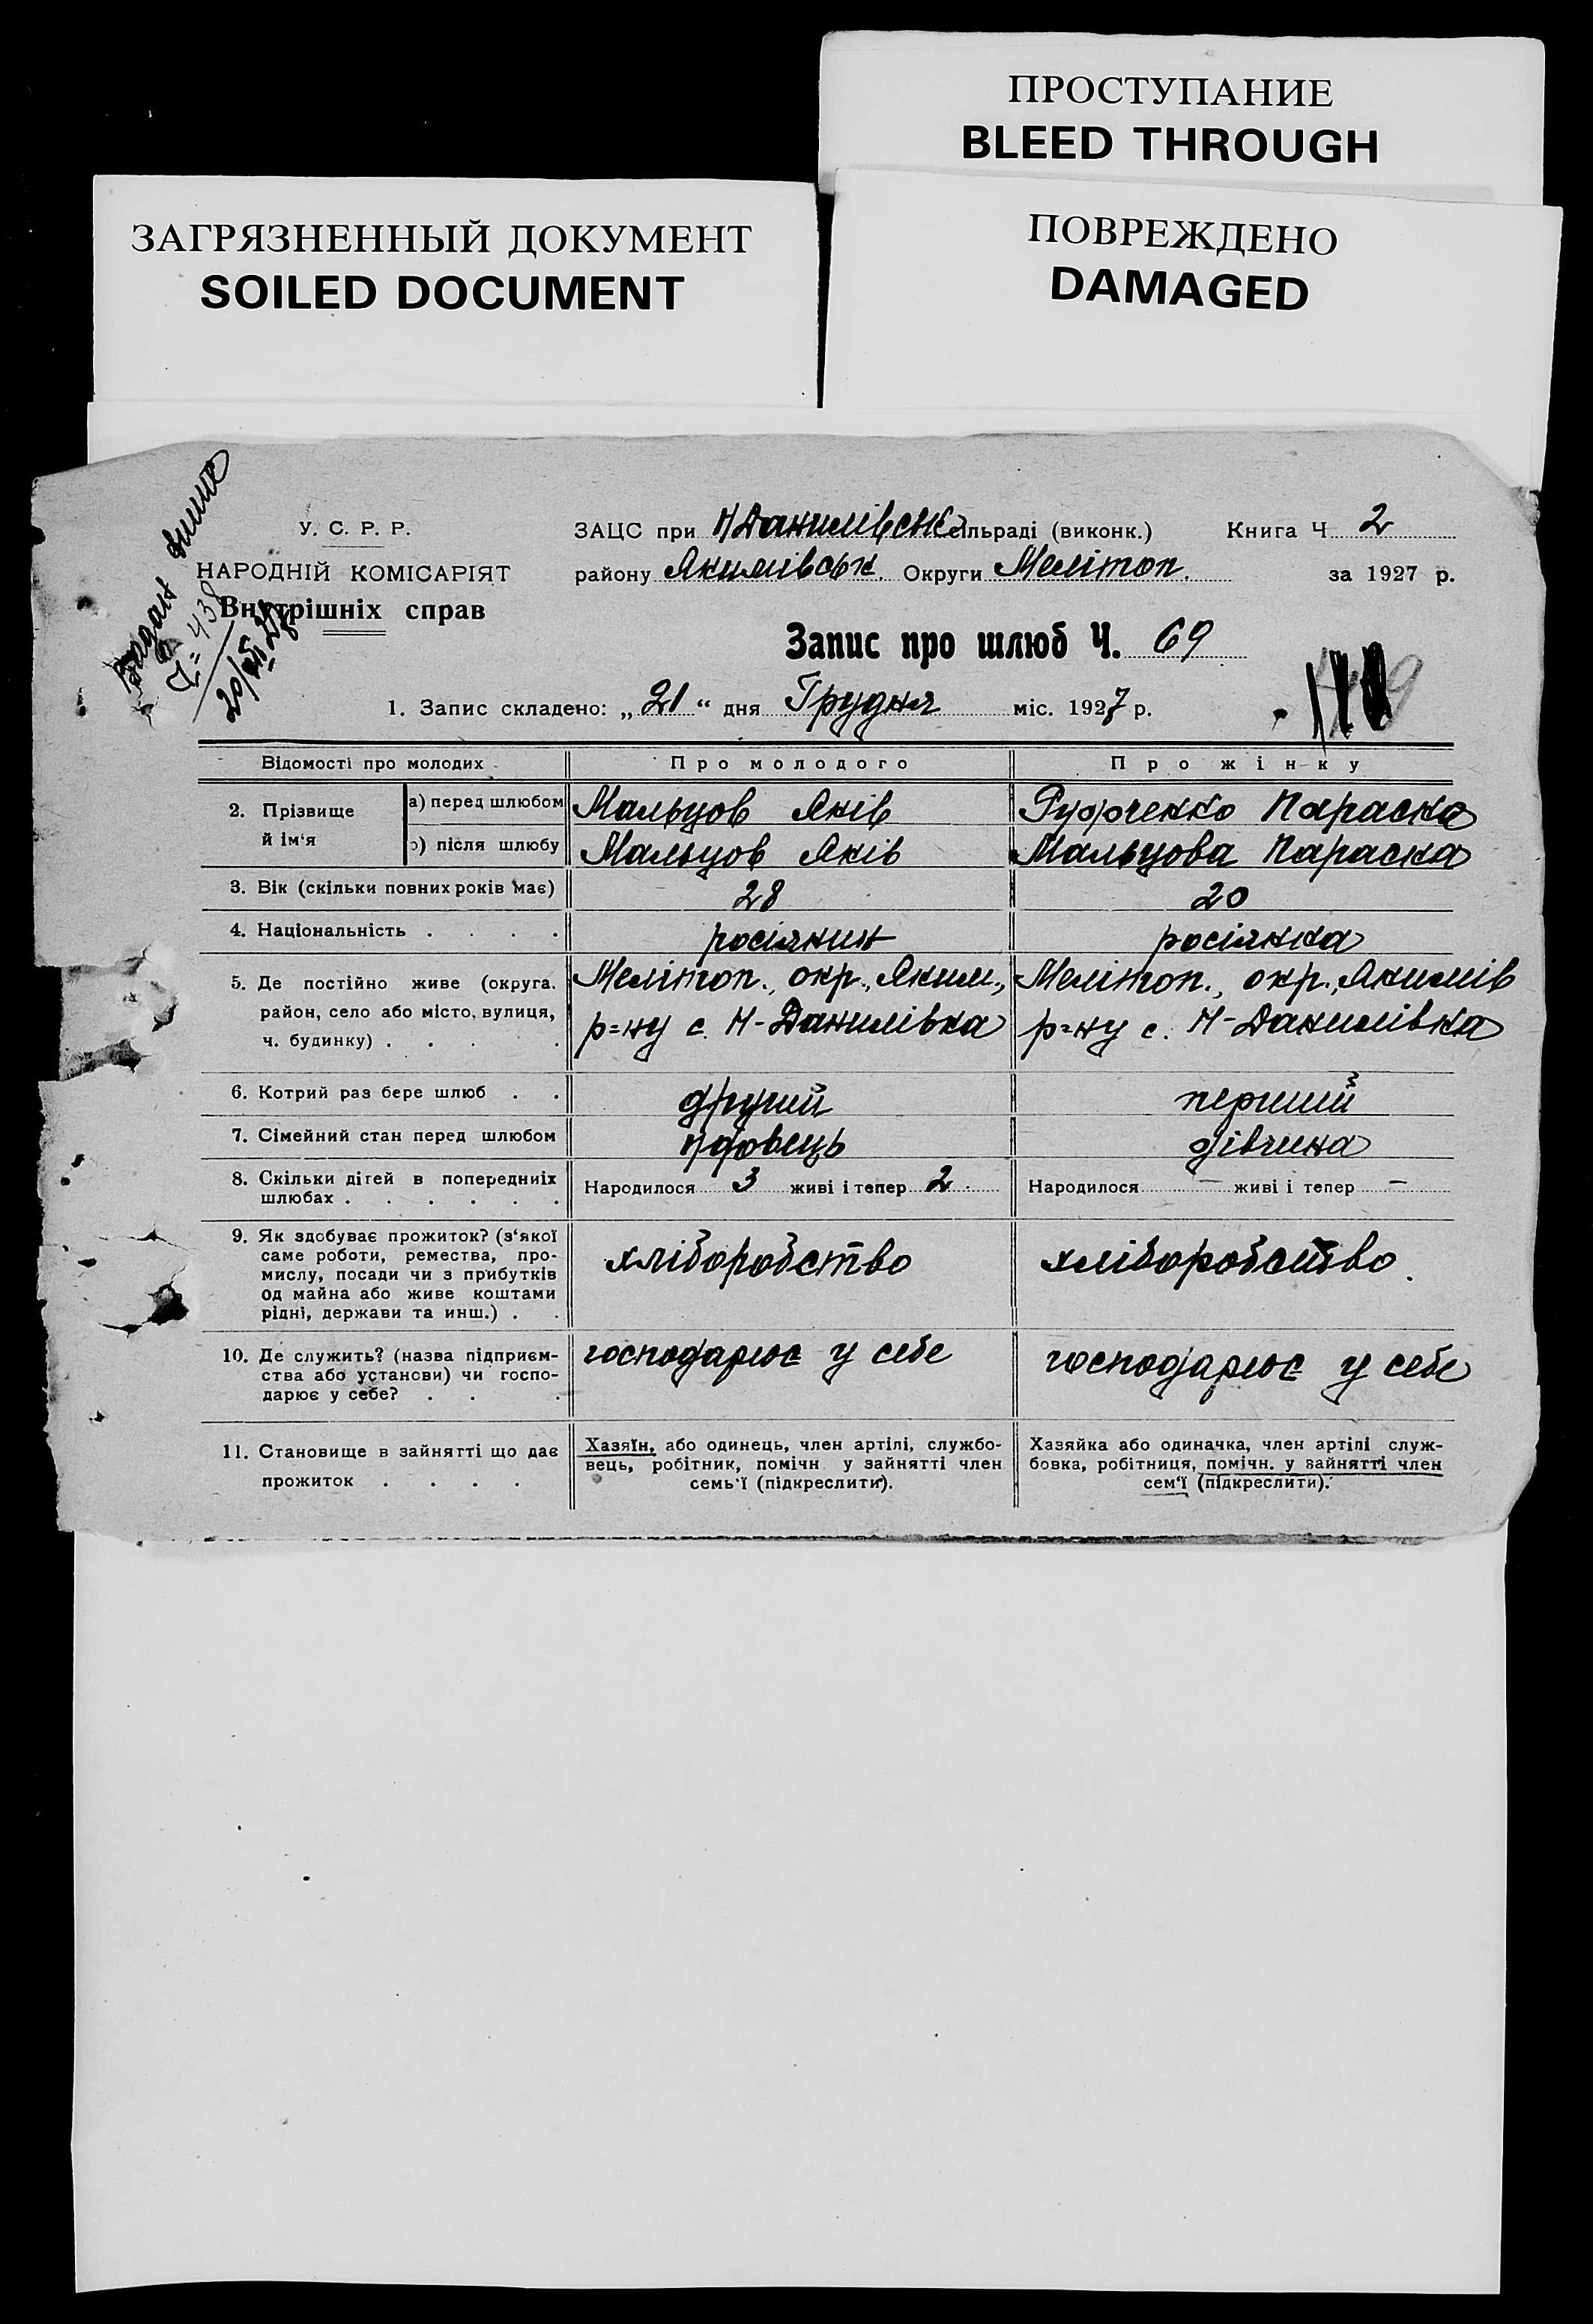 ПРОСТУПАНИЕ
BLEED THROUGH
ЗАГРЯЗНЕННЫЙ ДОКУМЕНТ
SOILED DOCUMENT
ПОВРЕЖДЕНО
DAMAGED
У. С. Р. Р.
НАРОДНІЙ КОМІСАРІЯТ
Внутрішніх справ
20/VII 28
ЗАЦС при Н Данилівськ сільраді (виконк.) Книга Ч 2
району Якимівськ. Округи Мелітоп. за 1927 р.
Запис про шлюб Ч. 69
1. Запис складено: „21“ дня Грудня міс. 1927 р.
Відомості про молодих Про молодого Про жінку
2. Прізвище й ім‘я а) перед шлюбом Мальцов Яків Параска
б) після шлюбу Мальцов Яків Мальцова Параска
3. Вік (скільки повних років має) 28 20
4. Національність . . . . росіянин росіянка
5. Де постійно живе (округа. Мелітоп., окр., Яким., Мелітоп., окр., Якимів
район, село або місто, вулиця, р=ну с. Н-Данилівка р=ну с. Н-Данилівка
ч. будинку) . . . .
6. Котрий раз бере шлюб . . другий перший
7. Сімейний стан перед шлюбом вдовець дівчина
8. Скільки дітей в попередніх Народилося 3 живі і тепер 2. Народилося — живі і тепер —
шлюбах . . . . . .
9. Як здобуває прожиток? (з‘якої
саме роботи, ремества, про- хліборобство хліборобство
мислу, посади чи з прибутків
од майна або живе коштами
рідні, держави та инш.) . .
10. Де служить? (назва підприєм- господарює у себе господарює у себе
ства або установи) чи госпо-
дарює у себе? . . .
11. Становище в зайнятті що дає Хазяїн, або одинець, член артілі, службо- Хазяйка або одиначка, член артілі служ-
прожиток . . . . вець, робітник, помічн. у зайнятті член бовка, робітниця, помічн. у зайнятті член
семь‘ї (підкреслити). сем‘ї (підкреслити).